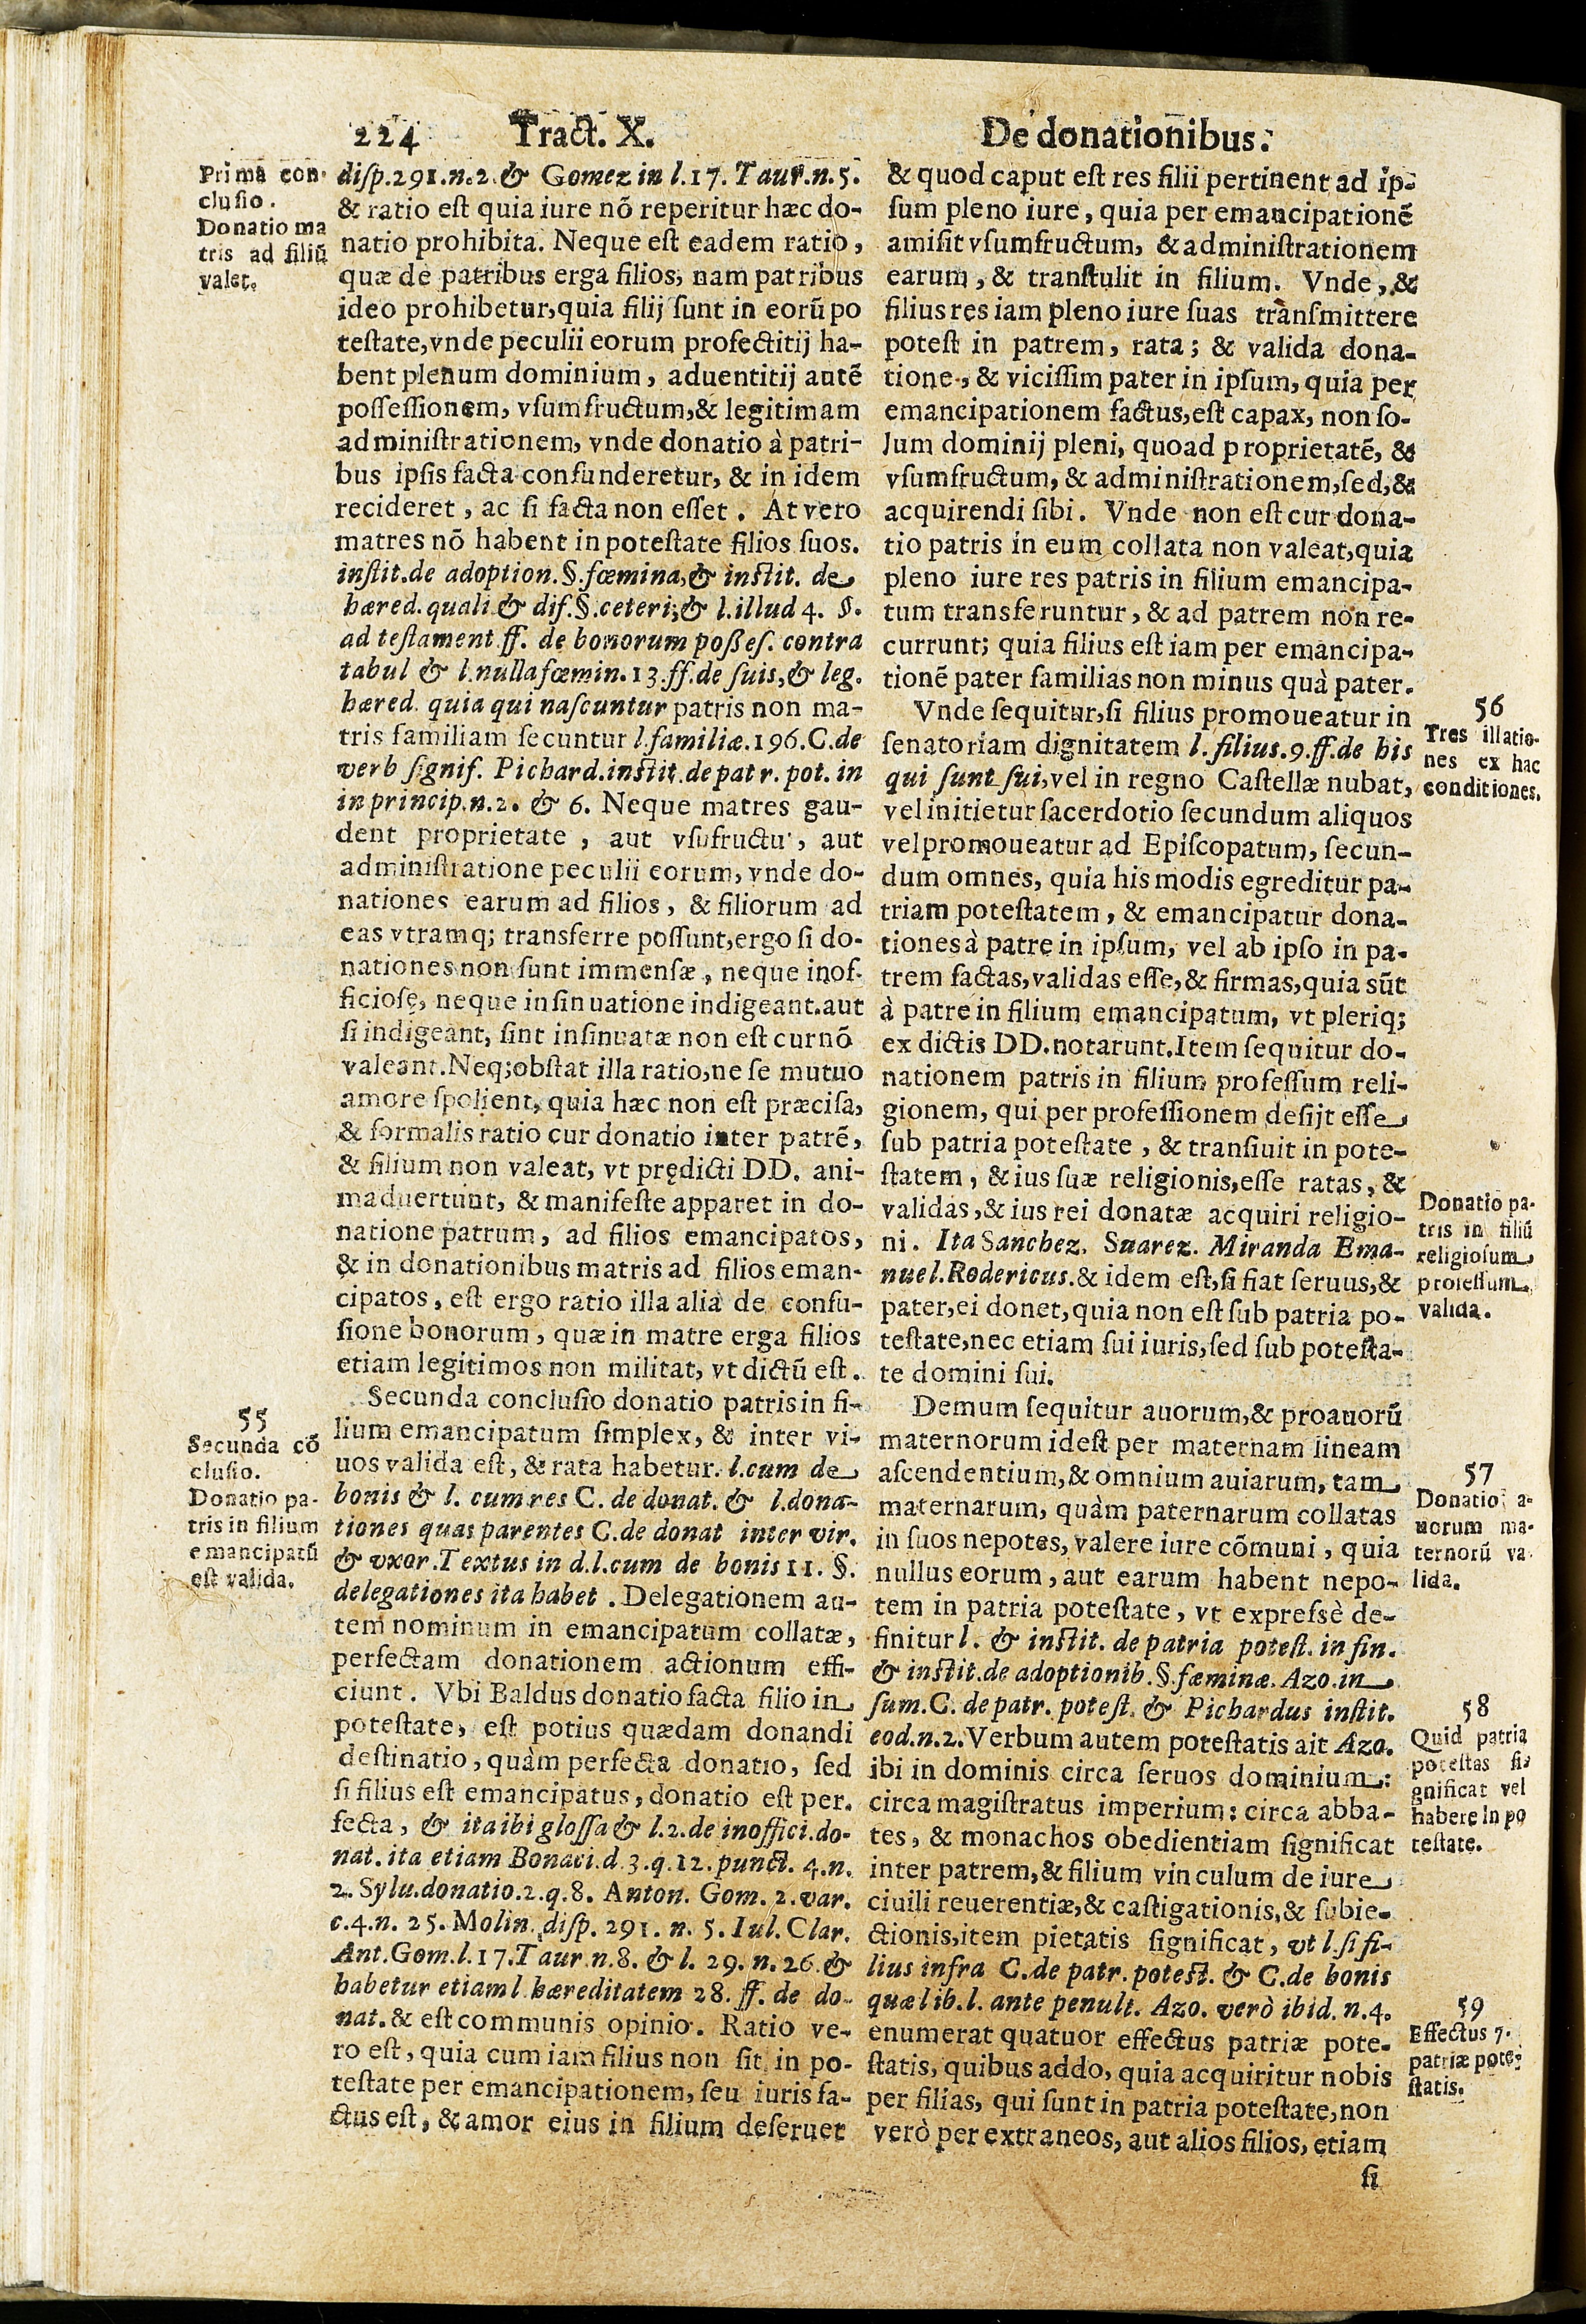 224 Tract. X. De donationibus.
Prima con-
clusio.
Donatio ma
tris ad filiũ
valet.
disp.291.n.2.& Gomez in l.17. Taur.n.5.
& ratio est quia iure nõ reperitur hæc do-
natio prohibita. Neque est eadem ratio,
quæ de patribus erga filios, nam patribus
ideo prohibetur,quia filij sunt in eorũ po
testate,vnde peculii eorum profectitij ha-
bent plenum dominium, aduentitij autẽ
possessionem, vsumfructum,& legitimam
administrationem, vnde donatio à patri-
bus ipsis facta confunderetur, & in idem
recideret, ac si facta non esset. At vero
matres nõ habent in potestate filios suos.
instit.de adoption.§.fœmina,& instit. de
hæred.quali.& dif.§.ceteri;& l.illud 4. §.
ad testament.ff. de bonorum posses. contra
tabul & l.nulla fœmin.13.ff.de suis,& leg.
hæred. quia qui nascuntur patris non ma-
tris familiam secuntur l.familiæ.196.C.de
verb signif. Pichard.instit.de patr. pot. in
in princip.n.2. & 6. Neque matres gau-
dent proprietate, aut vsufructu, aut
administratione peculii eorum, vnde do-
nationes earum ad filios, & filiorum ad
eas vtramq; transferre possunt,ergo si do-
nationes non sunt immensæ, neque inof-
ficiosę, neque insinuatione indigeant.aut
si indigeant, sint insinuatæ non est cur nõ
valeant.Neq;obstat illa ratio,ne se mutuo
amore spolient, quia hæc non est præcisa,
& formalis ratio cur donatio inter patrẽ,
& filium non valeat, vt prędicti DD. ani-
maduertunt, & manifeste apparet in do-
natione patrum, ad filios emancipatos,
& in donationibus matris ad filios eman-
cipatos, est ergo ratio illa alia de confu-
sione bonorum, quæ in matre erga filios
etiam legitimos non militat, vt dictũ est.
55
Secunda cõ
clusio.
Donatio pa-
tris in filium
emancipatũ
est valida.
Secunda conclusio donatio patris in fi-
lium emancipatum simplex, & inter vi-
uos valida est, & rata habetur. l.cum de
bonis & l. cum res C. de donat. & l.dona-
tiones quas parentes C.de donat inter vir.
& vxor.Textus in d.l.cum de bonis 11. §.
delegationes ita habet. Delegationem au-
tem nominum in emancipatum collatæ,
perfectam donationem actionum effi-
ciunt. Vbi Baldus donatio facta filio in
potestate, est potius quædam donandi
destinatio, quàm perfecta donatio, sed
si filius est emancipatus, donatio est per.
fecta, & ita ibi glossa & l.2.de inoffici.do-
nat. ita etiam Bonaci.d 3.q.12. punct. 4.n.
2. Sylu.donatio.2.q.8. Anton. Gom. 2.var.
c.4.n. 25. Molin. disp. 291. n. 5. Iul. Clar.
Ant.Gom.l.17.Taur.n.8. & l. 29. n.26.&
habetur etiam l hæreditatem 28. ff. de do-
nat. & est communis opinio. Ratio ve-
ro est, quia cum iam filius non sit in po-
testate per emancipationem, seu iuris fa-
ctus est, & amor eius in filium deseruet
& quod caput est res filii pertinent ad ip-
sum pleno iure, quia per emancipationẽ
amisit vsumfructum, & administrationem
earum, & transtulit in filium. Vnde, &
filius res iam pleno iure suas transmittere
potest in patrem, rata; & valida dona-
tione, & vicissim pater in ipsum, quia per
emancipationem factus,est capax, non so-
lum dominij pleni, quoad proprietatẽ, &
vsumfructum, & administrationem,sed,&
acquirendi sibi. Vnde non est cur dona-
tio patris in eum collata non valeat,quia
pleno iure res patris in filium emancipa-
tum transferuntur, & ad patrem non re-
currunt; quia filius est iam per emancipa-
tionẽ pater familias non minus quà pater.
56
Tres illatio-
nes ex hac
conditiones.
Vnde sequitur,si filius promoueatur in
senatoriam dignitatem l. filius.9.ff.de his
qui sunt sui,vel in regno Castellæ nubat,
vel initietur sacerdotio secundum aliquos
vel promoueatur ad Episcopatum, secun-
dum omnes, quia his modis egreditur pa-
triam potestatem, & emancipatur dona-
tiones à patre in ipsum, vel ab ipso in pa-
trem factas,validas esse,& firmas,quia sũt
à patre in filium emancipatum, vt pleriq;
ex dictis DD.notarunt.Item sequitur do-
nationem patris in filium professum reli-
gionem, qui per professionem desijt esse
sub patria potestate, & transiuit in pote-
statem, & ius suæ religionis,esse ratas, &
validas,& ius rei donatæ acquiri religio-
ni. Ita Sanchez. Suarez. Miranda Ema-
nuel.Rodericus.& idem est,si fiat seruus,&
pater,ei donet,quia non est sub patria po-
testate,nec etiam sui iuris,sed sub potesta-
te domini sui.
Donatio pa-
tris in filiũ
religiosum
professum
valida.
Demum sequitur auorum,& proauorũ
maternorum idest per maternam lineam
ascendentium,& omnium auiarum, tam
maternarum, quàm paternarum collatas
in suos nepotes, valere iure cõmuni, quia
nullus eorum, aut earum habent nepo-
tem in patria potestate, vt expressè de-
finitur l. & instit. de patria potest. in fin.
& instit.de adoptionib.§.fæminæ. Azo.in
sum.C. de patr. potest. & Pichardus instit.
eod.n.2. Verbum autem potestatis ait Azo.
ibi in dominis circa seruos dominium:
circa magistratus imperium: circa abba-
tes, & monachos obedientiam significat
inter patrem,& filium vinculum de iure
ciuili reuerentiæ,& castigationis,& subie-
ctionis,item pietatis significat, vt l.si fi-
lius infra C.de patr. potest. & C.de bonis
quæ lib.l. ante penult. Azo. verò ibid. n.4.
enumerat quatuor effectus patriæ pote-
statis, quibus addo, quia acquiritur nobis
per filias, qui sunt in patria potestate,non
verò per extraneos, aut alios filios, etiam
si
57
Donatio a-
uorum ma-
ternorũ va-
lida.
58
Quid patria
potestas si-
gnificat vel
habere in po
testate.
59
Effectus 7.
patriæ pote-
statis.